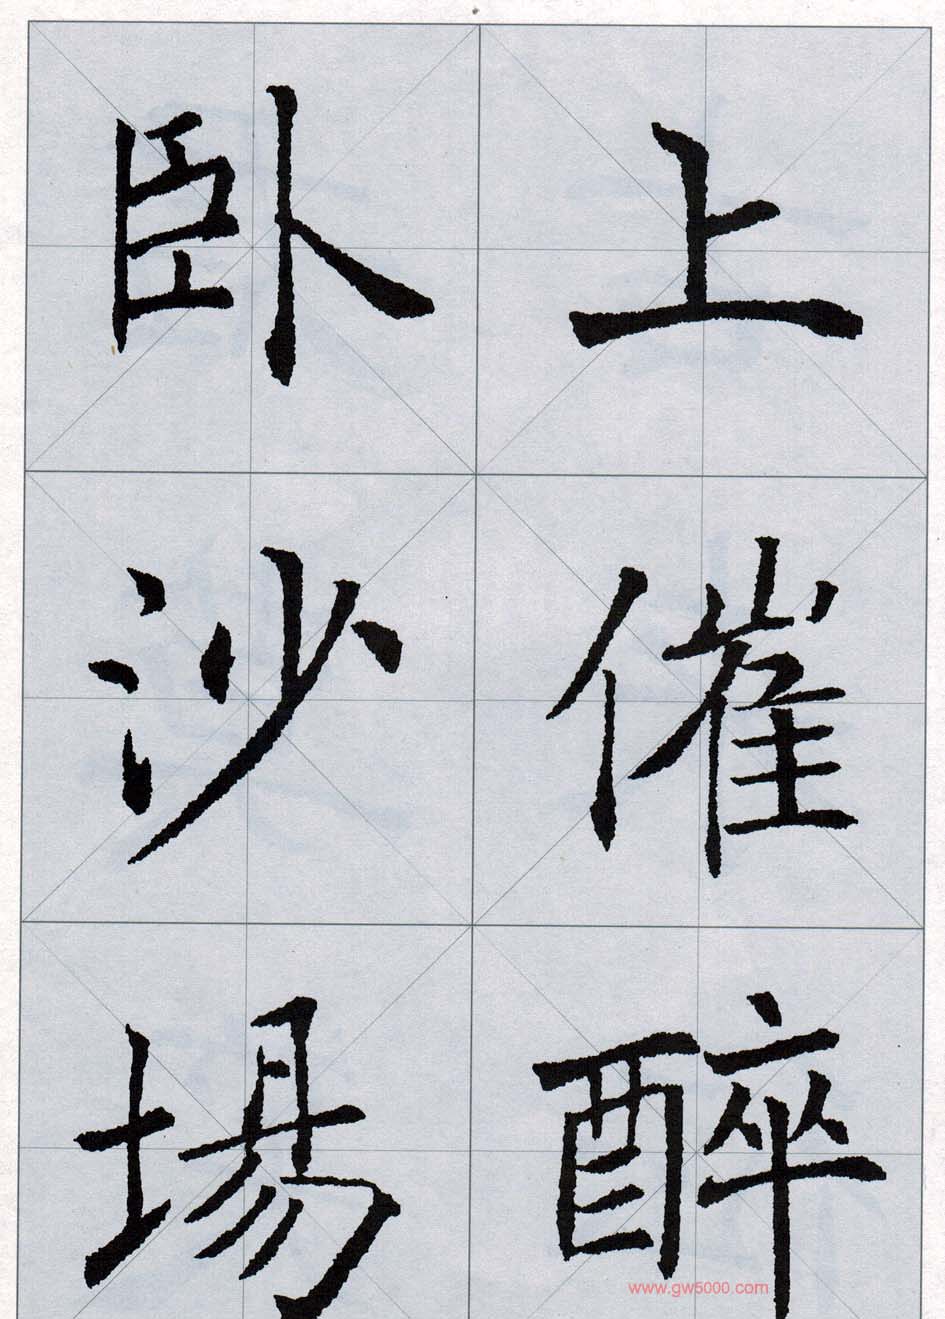 上催醉
卧沙場
www.gw5000.com